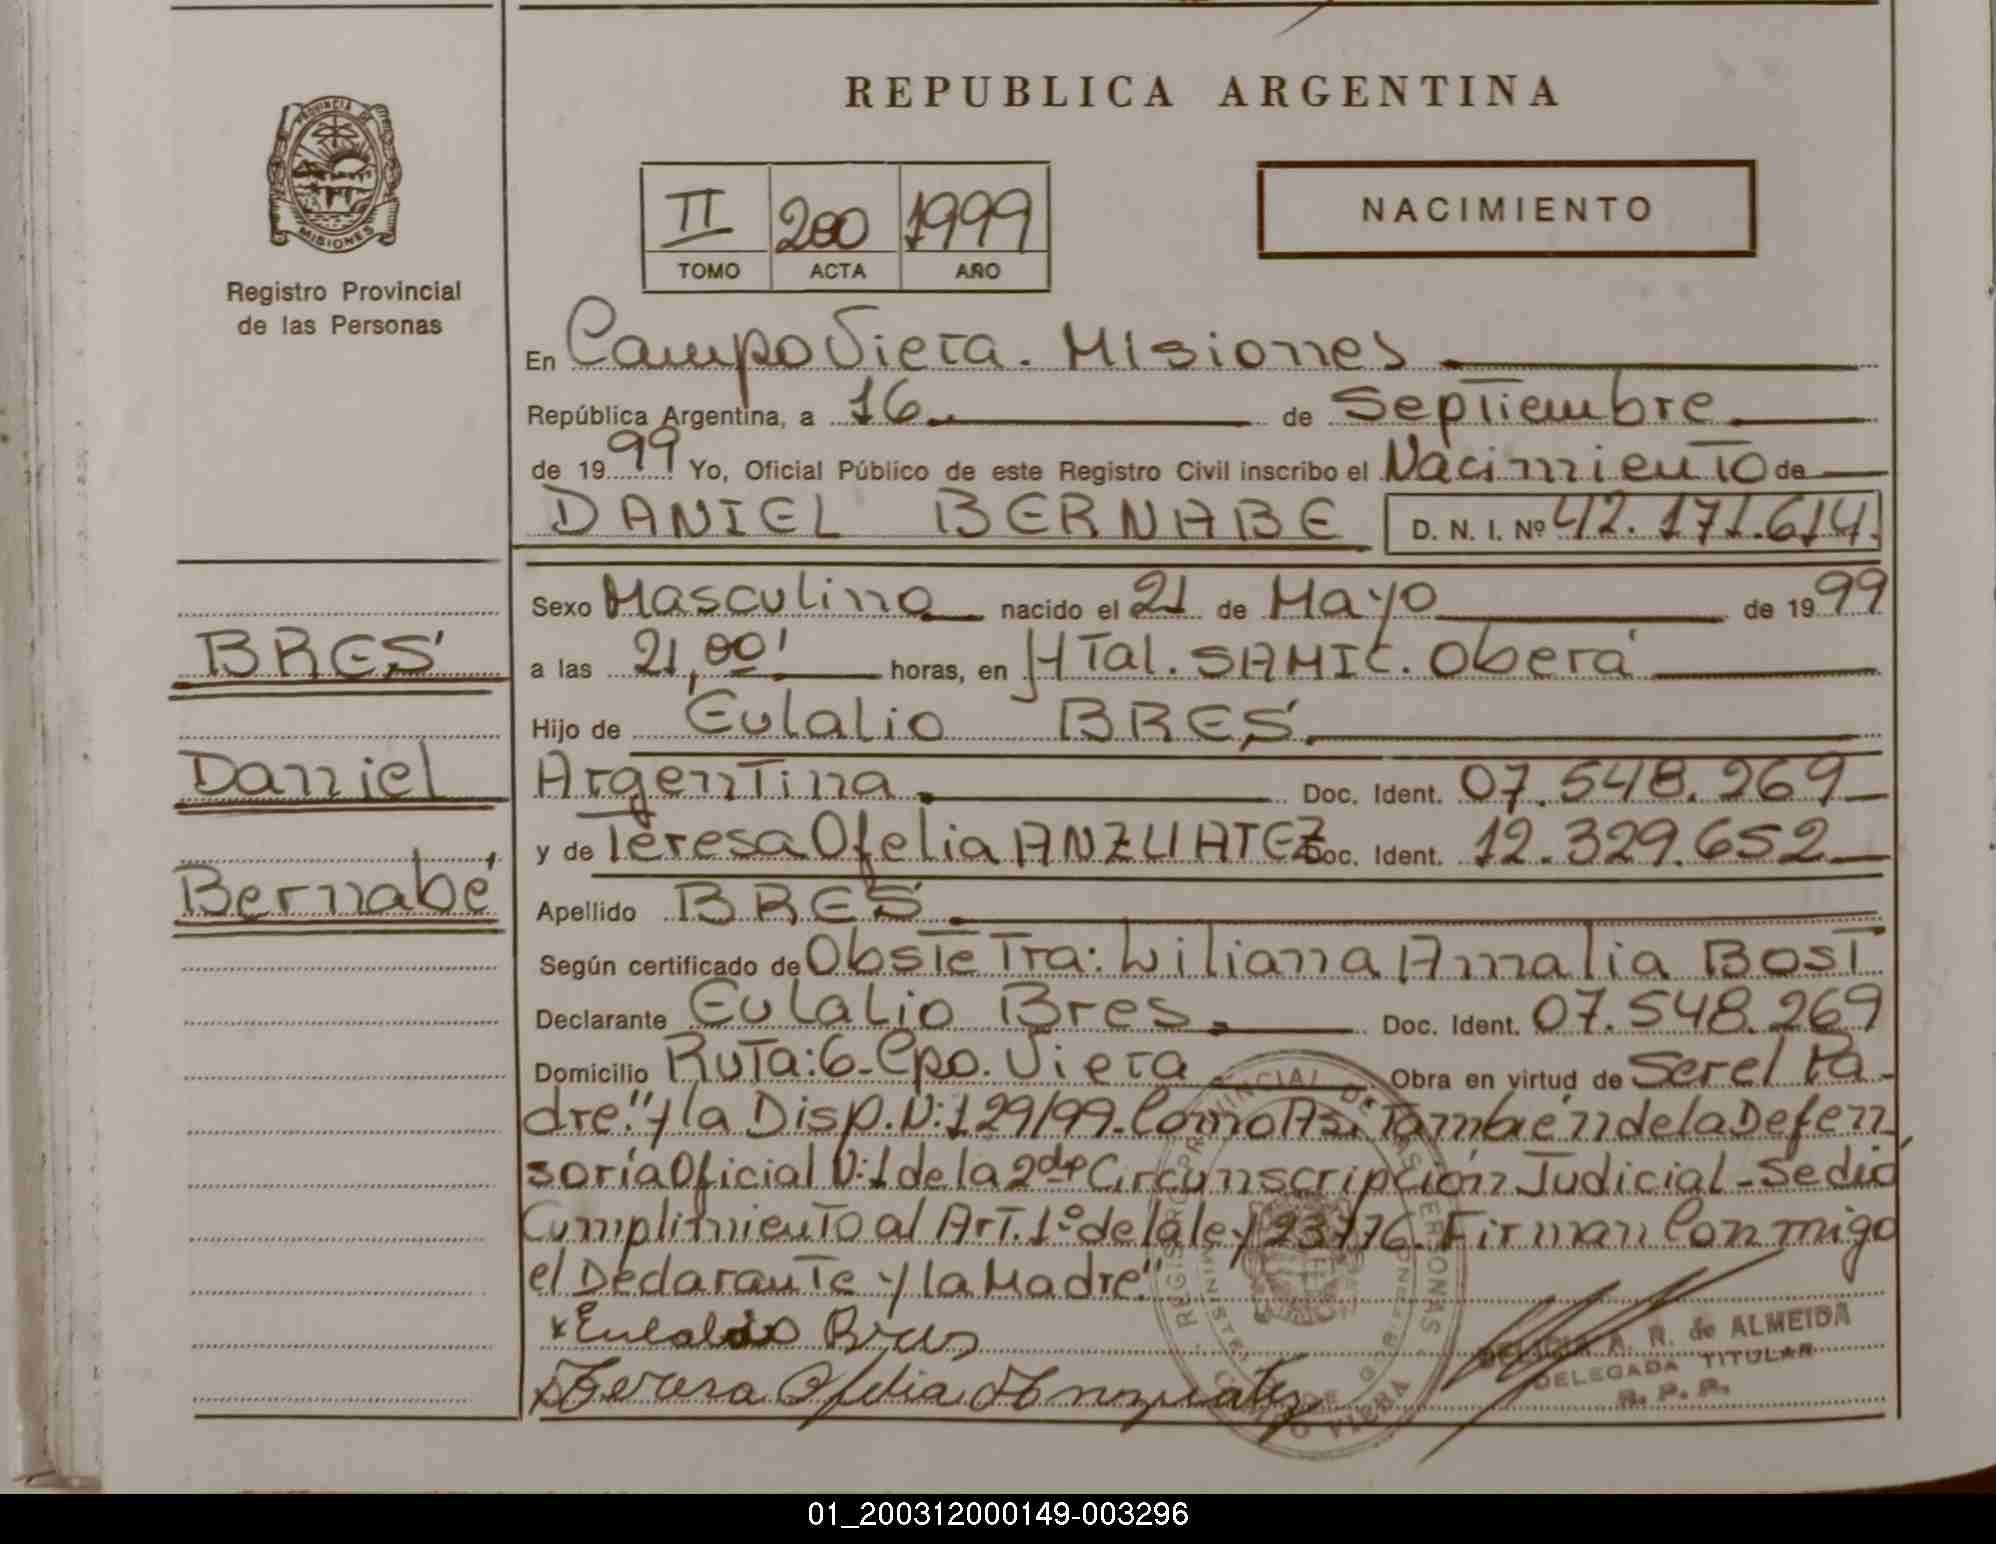 REPUBLICA ARGENTINA
PROVINCIA DE
MISIONES
Registro Provincial
de las Personas
II 200 1999
TOMO ACTA AÑO
NACIMIENTO
En Campo Viera. Misiones
República Argentina, a 16 de Septiembre
de 1999 Yo, Oficial Público de este Registro Civil inscribo el Nacimiento de
DANIEL BERNABE D. N. I. Nº 42.171.614.
Sexo Masculino nacido el 21 de Mayo de 1999
a las 21,00' horas, en HTal. SAMIC. Oberá
Hijo de Eulalio BRES.
Argentina. Doc. Ident. 07.548.269
y de Teresa Ofelia ANZUATEZ Doc. Ident. 12.329.652
Apellido BRES
Según certificado de Obstetra: Liliana Amalia BOST
Declarante Eulalio Bres. Doc. Ident. 07.548.269
Domicilio Ruta: 6- Cpo. Viera Obra en virtud de Ser el Pa-
dre." y la Disp. N: 129/99. Como Así También de la Defen-
soría Oficial N: 1 de la 2da Circunscripción Judicial - Se dió
Cumplimiento al Art. 1º de la ley 23776. Firman Conmigo
el Declarante y la Madre"
x Eulalio Bres
x Teresa Ofelia Anzuatez
BRES
Daniel
Bernabé
A. R. de ALMEIDA
DELEGADA TITULAR
R. P. P.
01_200312000149-003296